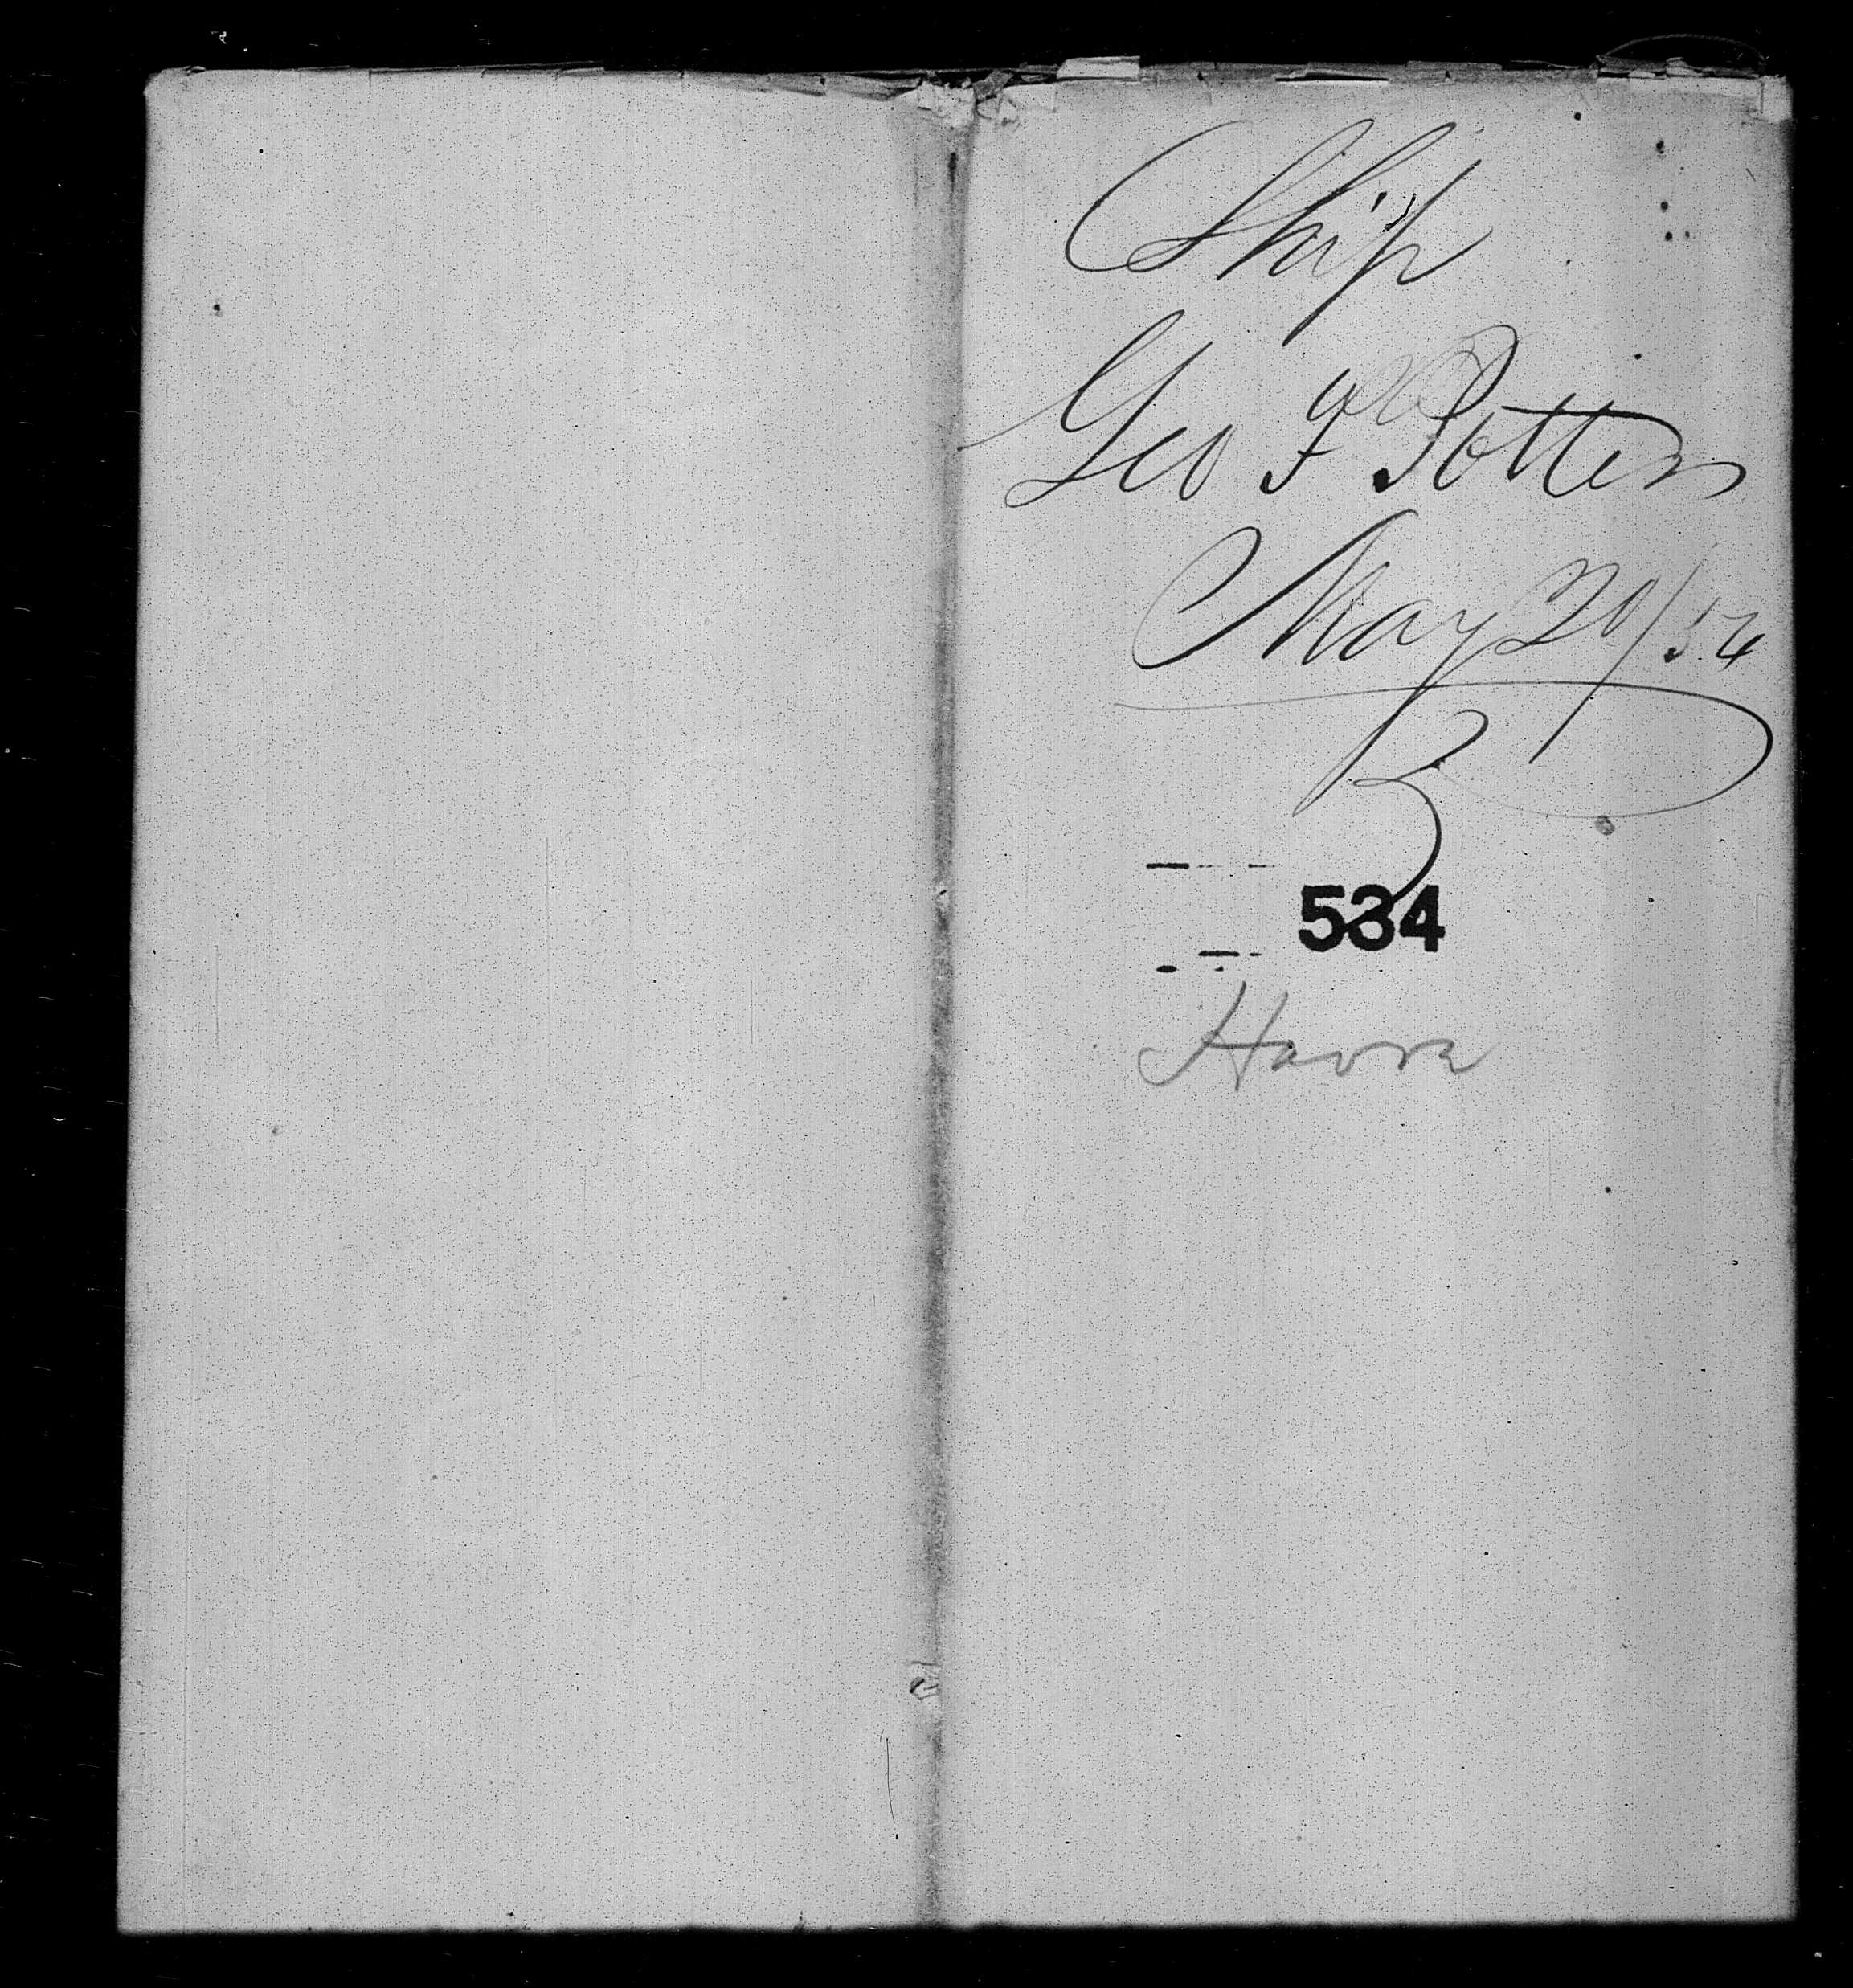 Ship
Geo F Patten
May 20/54
B
534
Havre